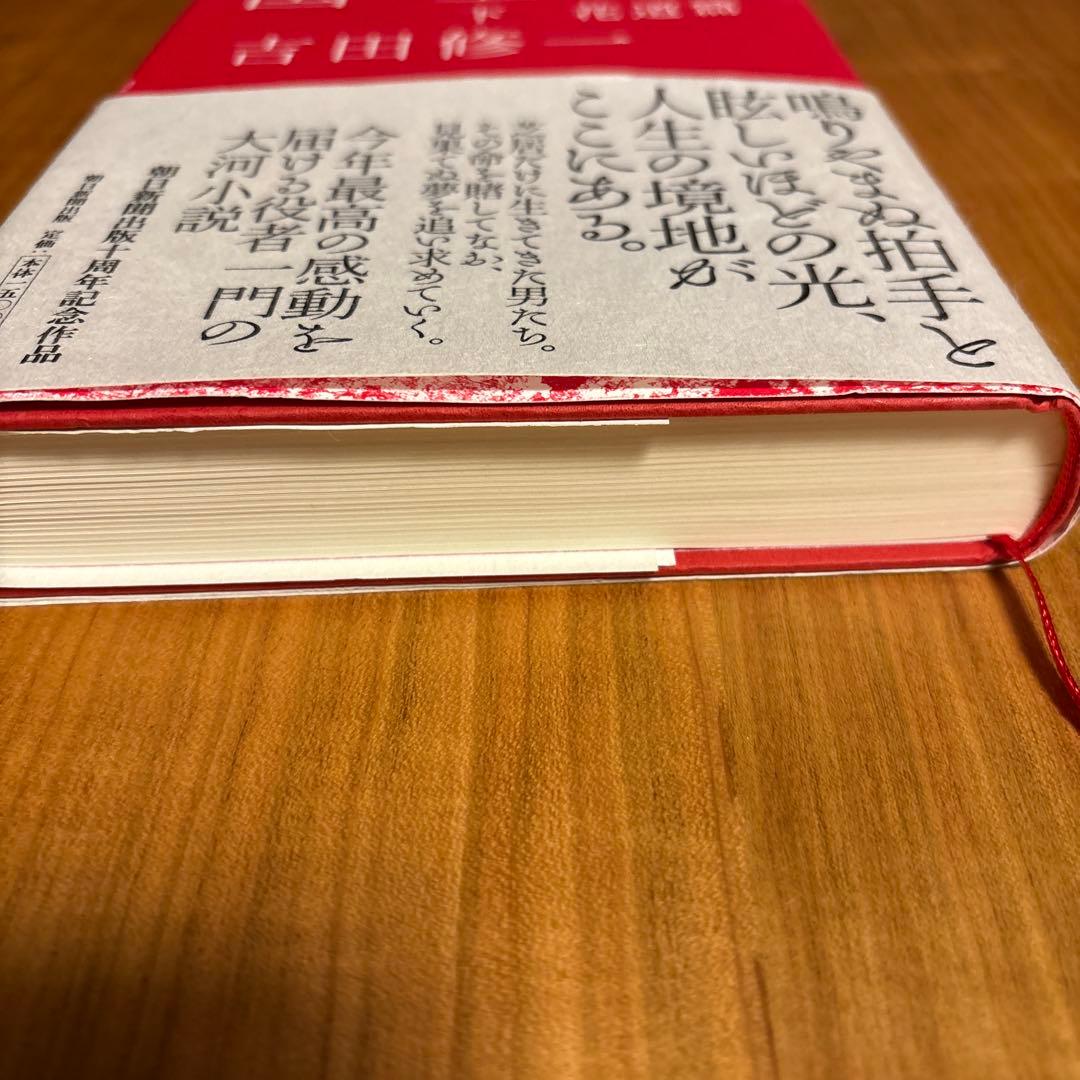 下
花道篇
吉田修一
鳴りやまぬ拍手と
眩しいほどの光、
人生の境地が
ここにある。
芝居だけに生きてきた男たち。
その命を賭してなお、
見果てぬ夢を追い求めていく。
今年最高の感動を
届ける役者一門の
大河小説
朝日新聞出版十周年記念作品
朝日新聞出版 定価:本体一五〇